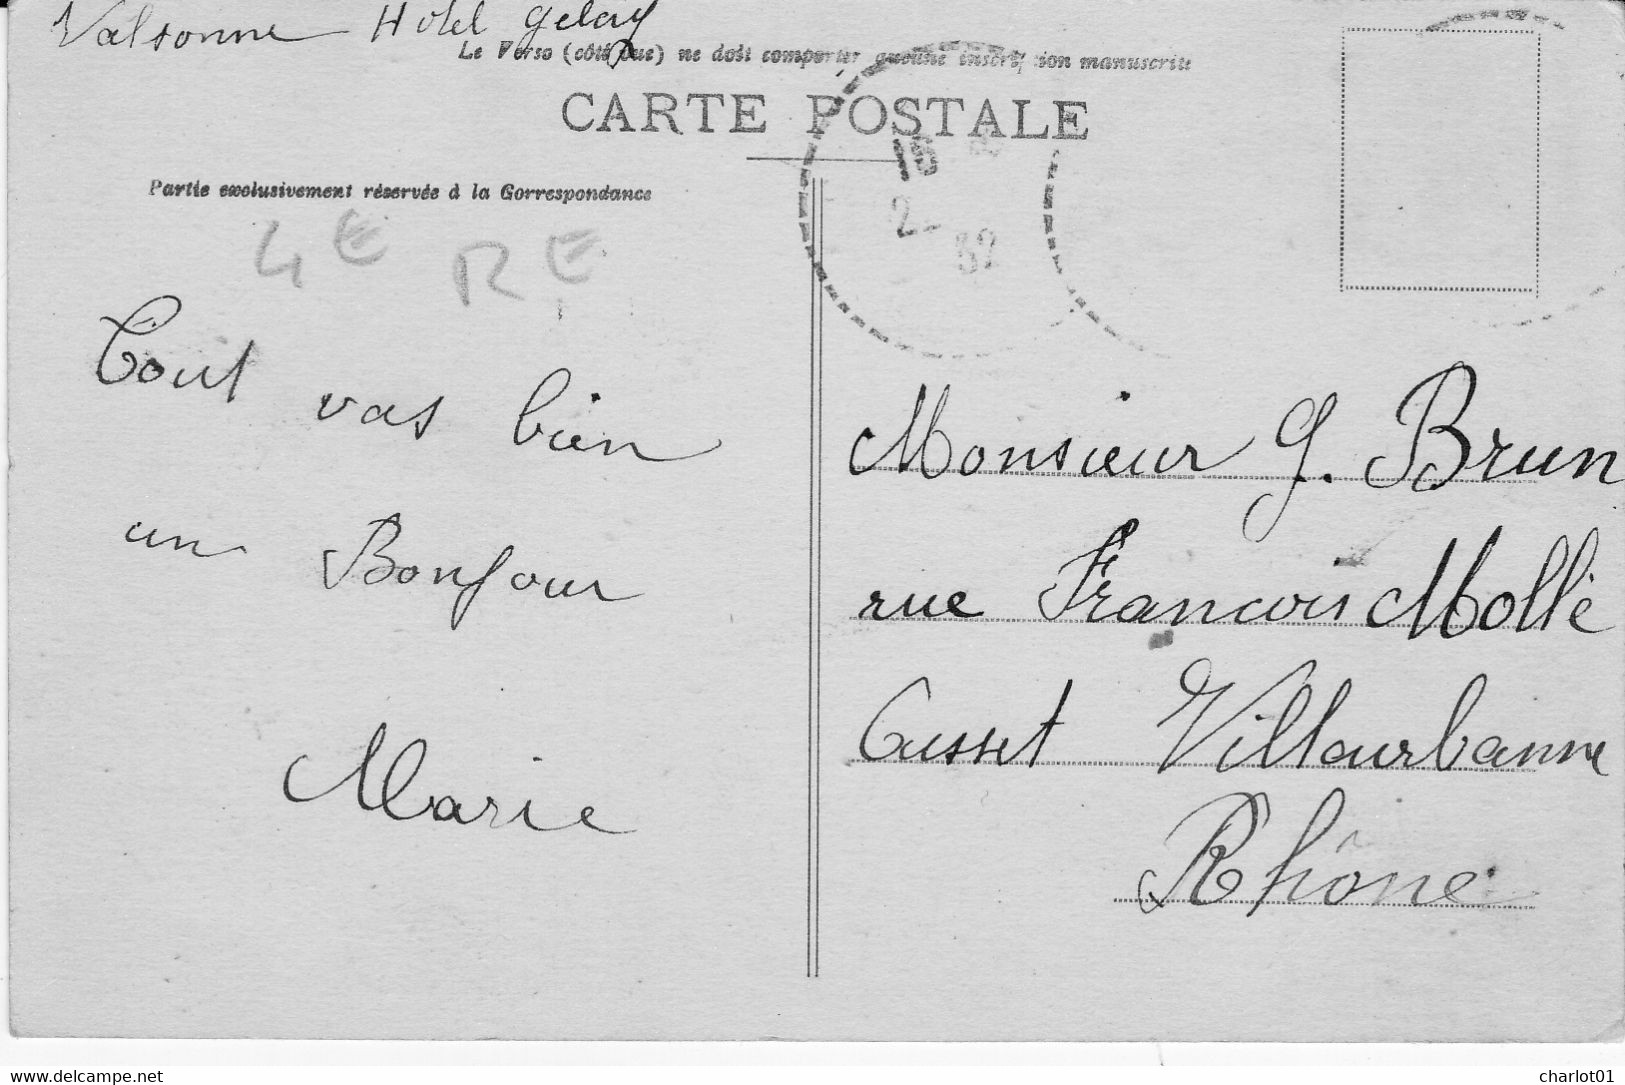 Valsonne Hotel Gelay
Le Verso (côté vue) ne doit comporter aucune inscription manuscrite
CARTE POSTALE
Partie exclusivement réservée à la Correspondance
16
2-
32
4E RE
Tout vas bien
un Bonjour
Marie
Monsieur G. Brun
rue Francois Mollé
Cusset Villeurbanne
Rhône
www.delcampe.net
charlot01